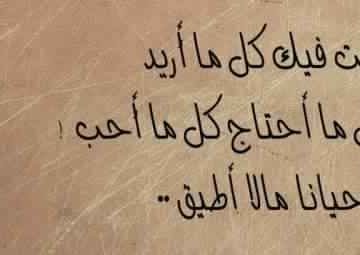 فيك كل ما أريد
ما أحتاج كل ما أحب !
أحيانا مالا أطيق ..